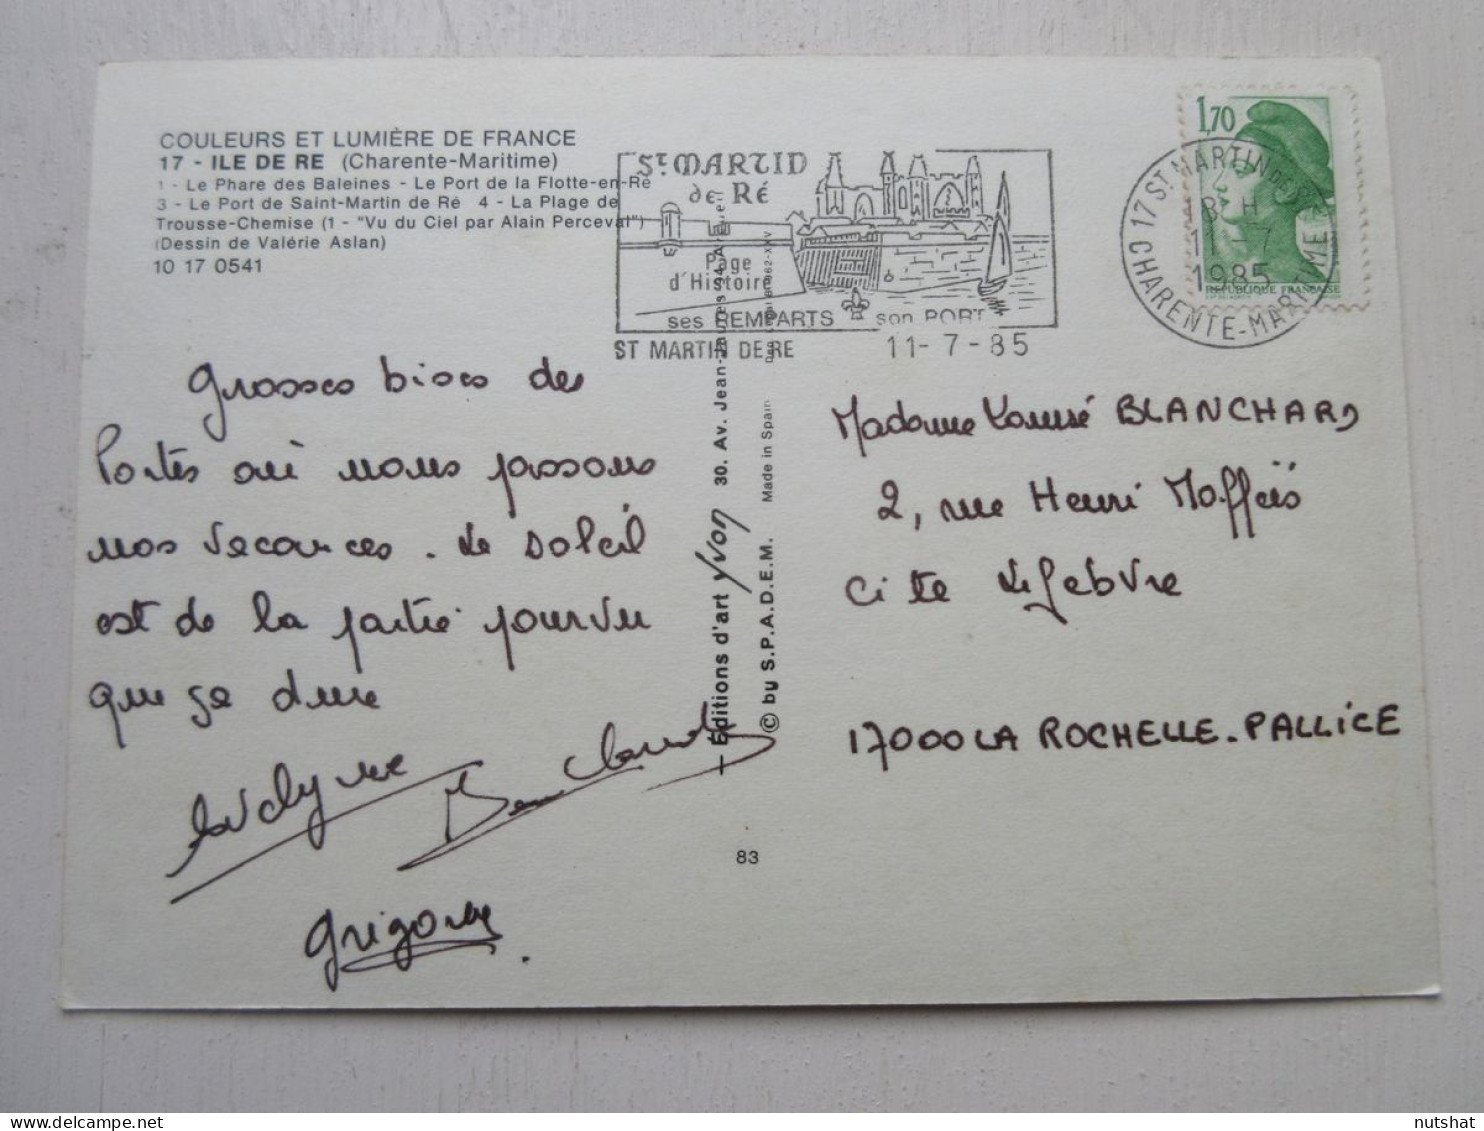 COULEURS ET LUMIÈRE DE FRANCE
17 - ILE DE RE (Charente-Maritime)
1 - Le Phare des Baleines - Le Port de la Flotte-en-Ré
3 - Le Port de Saint-Martin de Ré 4 - La Plage de
Trousse-Chemise (1 - "Vu du Ciel par Alain Perceval")
(Dessin de Valérie Aslan)
10 17 0541
St MARTIN
de Ré
Page
d'Histoire
ses REMPARTS son PORT
ST MARTIN DE RE 11-7-85
1,70
REPUBLIQUE FRANÇAISE
17 St MARTIN DE RE
18 H
11-7
1985
CHARENTE-MARITIME
Grosses bises des
Portes où nous passons
nos vacances. Le soleil
est de la partie pourvu
que ça dure
Evelyne
Jean Claude
Grégory
Éditions d'art Yvon 30. Av. Jean-Jaurès 94
© by S.P.A.D.E.M. Made in Spain
83
Madame BLANCHARD
2, rue Henri
Cite Lefebvre
17000 LA ROCHELLE-PALLICE
nutshat